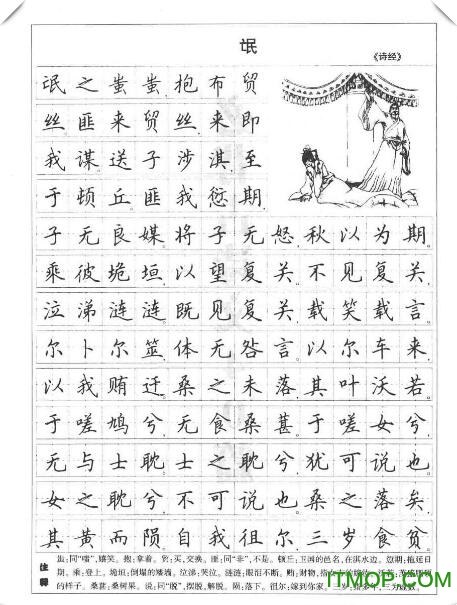 氓
《诗经》
氓之蚩蚩,抱布贸
丝。匪来贸丝,来即
我谋。送子涉淇,至
于顿丘。匪我愆期,
子无良媒。将子无怒,秋以为期。
乘彼垝垣,以望复关。不见复关,
泣涕涟涟。既见复关,载笑载言。
尔卜尔筮,体无咎言。以尔车来,
以我贿迁。桑之未落,其叶沃若。
于嗟鸠兮,无食桑葚。于嗟女兮,
无与士耽。士之耽兮,犹可说也。
女之耽兮,不可说也。桑之落矣,
其黄而陨。自我徂尔,三岁食贫。
注释
蚩:同“嗤”,嬉笑。抱:拿着。贸:买,交换。匪:同“非”,不是。顿丘:卫国的邑名,在淇水边。愆期:拖延日
期。乘:登上。垝垣:倒塌的矮墙。泣涕:哭泣。涟涟:眼泪不断。贿:财物,
的样子。桑葚:桑树果。说:同“脱”,摆脱,解脱。陨:落下。徂尔:嫁到你家。
ITMOP.COM
IT猫扑下载